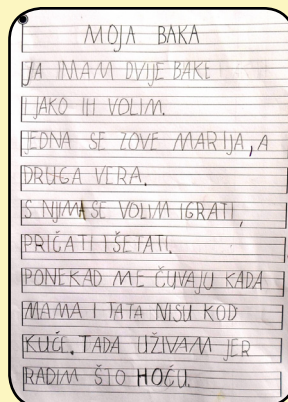 MOJA BAKA
JA IMAM DVIJE BAKE
I JAKO IH VOLIM.
JEDNA SE ZOVE MARIJA, A
DRUGA VERA.
S NJIMA SE VOLIM IGRATI,
PRIČATI I ŠETATI.
PONEKAD ME ČUVAJU KADA
MAMA I TATA NISU KOD
KUĆE. TADA UŽIVAM JER
RADIM ŠTO HOĆU.